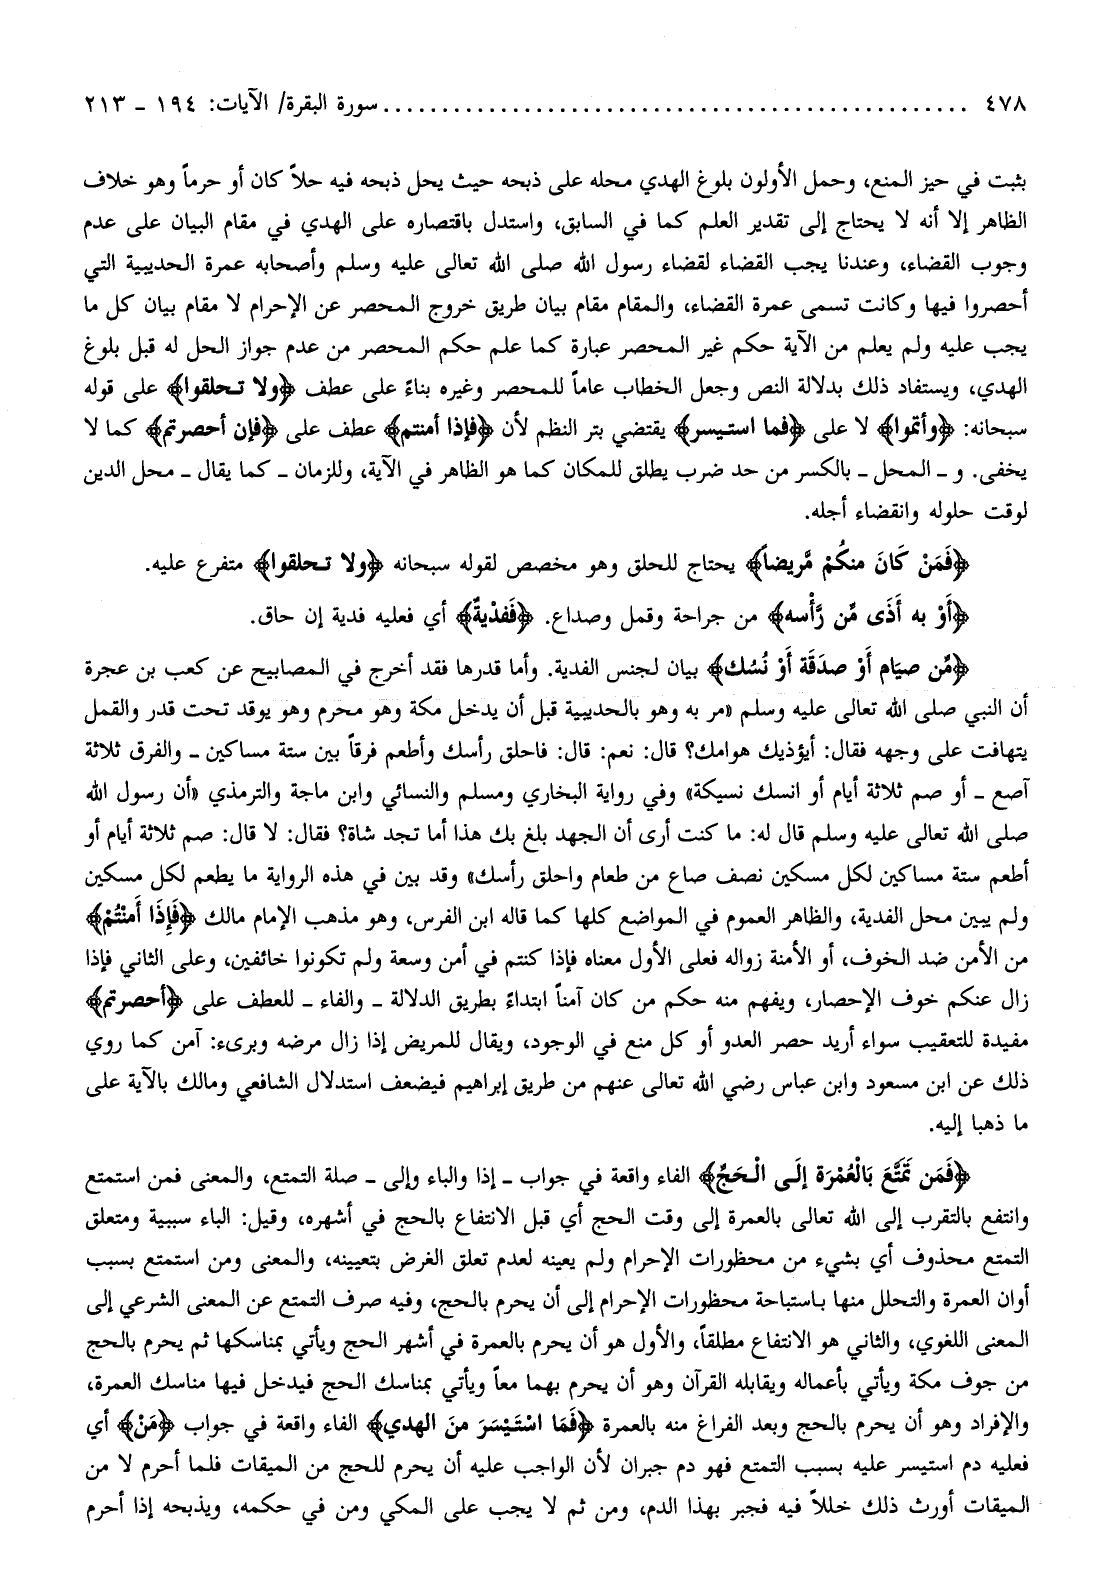 ٤٧٨ .................................................. سورة البقرة/ الآيات: ١٩٤ ـ ٢١٣
بثبت في حيز المنع، وحمل الأولون بلوغ الهدي محله على ذبحه حيث يحل ذبحه فيه حلاً كان أو حرماً وهو خلاف
الظاهر إلا أنه لا يحتاج إلى تقدير العلم كما في السابق، واستدل باقتصاره على الهدي في مقام البيان على عدم
وجوب القضاء، وعندنا يجب القضاء لقضاء رسول الله صلى الله تعالى عليه وسلم وأصحابه عمرة الحديبية التي
أحصروا فيها وكانت تسمى عمرة القضاء، والمقام مقام بيان طريق خروج المحصر عن الإحرام لا مقام بيان كل ما
يجب عليه ولم يعلم من الآية حكم غير المحصر عبارة كما علم حكم المحصر من عدم جواز الحل له قبل بلوغ
الهدي، ويستفاد ذلك بدلالة النص وجعل الخطاب عاماً للمحصر وغيره بناءً على عطف ﴿ولا تحلقوا﴾ على قوله
سبحانه: ﴿وأتموا﴾ لا على ﴿فما استيسر﴾ يقتضي بتر النظم لأن ﴿فإذا أمنتم﴾ عطف على ﴿فإن أحصرتم﴾ كما لا
يخفى. و ـ المحل ـ بالكسر من حد ضرب يطلق للمكان كما هو الظاهر في الآية، وللزمان ـ كما يقال ـ محل الدين
لوقت حلوله وانقضاء أجله.
﴿فَمَنْ كَانَ منكُمْ مَّريضاً﴾ يحتاج للحلق وهو مخصص لقوله سبحانه ﴿ولا تحلقوا﴾ متفرع عليه.
﴿أَوْ به أَذَى مِّن رَّأْسه﴾ من جراحة وقمل وصداع. ﴿فَفدْيةٌ﴾ أي فعليه فدية إن حاق.
﴿مِّن صيَام أَوْ صدَقَة أَوْ نُسُك﴾ بيان لجنس الفدية. وأما قدرها فقد أخرج في المصابيح عن كعب بن عجرة
أن النبي صلى الله تعالى عليه وسلم «مر به وهو بالحديبية قبل أن يدخل مكة وهو محرم وهو يوقد تحت قدر والقمل
يتهافت على وجهه فقال: أيؤذيك هوامك؟ قال: نعم: قال: فاحلق رأسك وأطعم فرقاً بين ستة مساكين ـ والفرق ثلاثة
آصع ـ أو صم ثلاثة أيام أو انسك نسيكة» وفي رواية البخاري ومسلم والنسائي وابن ماجة والترمذي «أن رسول الله
صلى الله تعالى عليه وسلم قال له: ما كنت أرى أن الجهد بلغ بك هذا أما تجد شاة؟ فقال: لا قال: صم ثلاثة أيام أو
أطعم ستة مساكين لكل مسكين نصف صاع من طعام واحلق رأسك» وقد بين في هذه الرواية ما يطعم لكل مسكين
ولم يبين محل الفدية، والظاهر العموم في المواضع كلها كما قاله ابن الفرس، وهو مذهب الإمام مالك ﴿فَإِذَا أَمنْتُمْ﴾
من الأمن ضد الخوف، أو الأمنة زواله فعلى الأول معناه فإذا كنتم في أمن وسعة ولم تكونوا خائفين، وعلى الثاني فإذا
زال عنكم خوف الإحصار، ويفهم منه حكم من كان آمناً ابتداءً بطريق الدلالة ـ والفاء ـ للعطف على ﴿أحصرتم﴾
مفيدة للتعقيب سواء أريد حصر العدو أو كل منع في الوجود، ويقال للمريض إذا زال مرضه وبرىء: آمن كما روي
ذلك عن ابن مسعود وابن عباس رضي الله تعالى عنهم من طريق إبراهيم فيضعف استدلال الشافعي ومالك بالآية على
ما ذهبا إليه.
﴿فَمَن تَمَتَّعَ بَالْعُمْرَة إلَى الْحَجِّ﴾ الفاء واقعة في جواب ـ إذا والباء وإلى ـ صلة التمتع، والمعنى فمن استمتع
وانتفع بالتقرب إلى الله تعالى بالعمرة إلى وقت الحج أي قبل الانتفاع بالحج في أشهره، وقيل: الباء سببية ومتعلق
التمتع محذوف أي بشيء من محظورات الإحرام ولم يعينه لعدم تعلق الغرض بتعيينه، والمعنى ومن استمتع بسبب
أوان العمرة والتحلل منها باستباحة محظورات الإحرام إلى أن يحرم بالحج، وفيه صرف التمتع عن المعنى الشرعي إلى
المعنى اللغوي، والثاني هو الانتفاع مطلقاً، والأول هو أن يحرم بالعمرة في أشهر الحج ويأتي بمناسكها ثم يحرم بالحج
من جوف مكة ويأتي بأعماله ويقابله القرآن وهو أن يحرم بهما معاً ويأتي بمناسك الحج فيدخل فيها مناسك العمرة،
والإفراد وهو أن يحرم بالحج وبعد الفراغ منه بالعمرة ﴿فَمَا اسْتَيْسَرَ منَ الهدي﴾ الفاء واقعة في جواب ﴿مَنْ﴾ أي
فعليه دم استيسر عليه بسبب التمتع فهو دم جبران لأن الواجب عليه أن يحرم للحج من الميقات فلما أحرم لا من
الميقات أورث ذلك خللاً فيه فجبر بهذا الدم، ومن ثم لا يجب على المكي ومن في حكمه، ويذبحه إذا أحرم